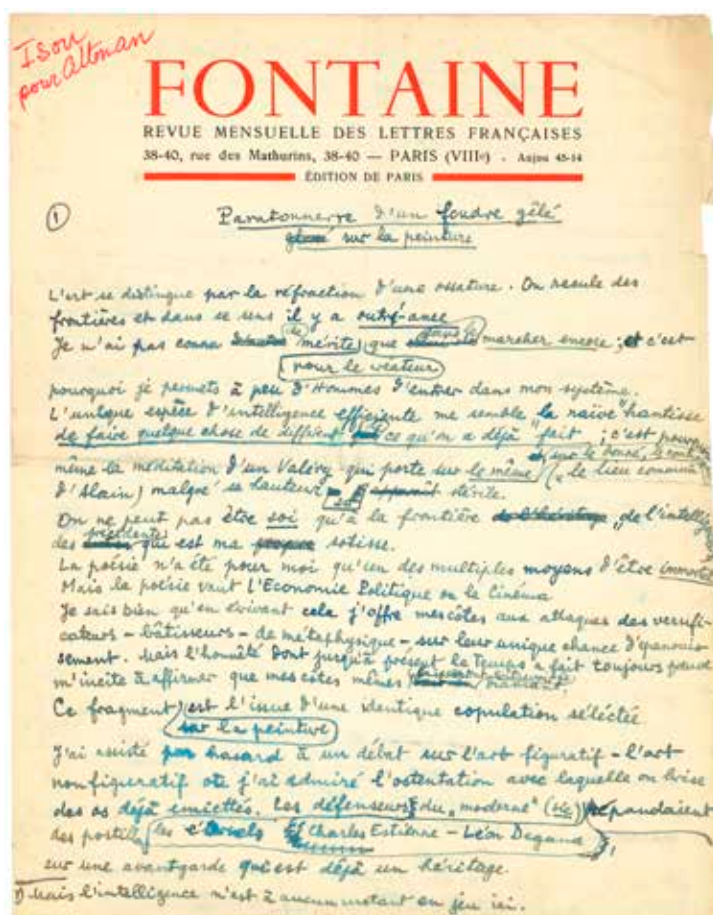 Isou
pour Altman
FONTAINE
REVUE MENSUELLE DES LETTRES FRANÇAISES
38-40, rue des Mathurins, 38-40 — PARIS (VIIIe) - Anjou 45-14
ÉDITION DE PARIS
1
Paratonnerre d'un foudre gêlé
sur la peinture
L'art se distingue par la réfraction d'une ossature. On recule des
frontières et dans se sens il y a outré-ance
Je n'ai pas connu de mérite que marcher encore ; et c'est
pour le créateur
pourquoi je permets à peu d'Hommes d'entrer dans mon système.
L'unique espèce d'intelligence efficiente me semble "la naïve hantise
de faire quelque chose de différent ce qu'on a déjà fait ; c'est pourquoi
sur le donné, le
même la méditation d'un Valéry qui porte sur le même ("le lieu commun"
d'Alain) malgré sa hauteur stérile.
On ne peut pas être soi qu'à la frontière "de l'intelli
des précédents qui est ma sotisse.
La poésie n'a été pour moi qu'un des multiples moyens d'être immortel
Mais la poésie vaut l'Economie Politique ou le Cinéma
Je sais bien qu'en écrivant cela j'offre mes côtes aux attaques des versifi-
cateurs - bâtisseurs - de métaphysique - sur leur unique chance d'épanouis-
sement. Mais l'honnêté dont jusqu'à présent le Temps a fait toujours preuve
m'incite à affirmer que mes côtes mêmes
Ce fragment est l'issue d'une identique copulation séléctée
sur la peinture
J'ai assisté par hasard à un débat sur l'art figuratif - l'art
nonfiguratif où j'ai admiré l'ostentation avec laquelle on brise
des os déjà émiettés. Les défenseurs du "moderne" (sic) répandaient
des postill les Charles Estienne - Léon Degand
sur une avantgarde qui est déjà un héritage.
1) Mais l'intelligence n'est à aucun instant en jeu ici.